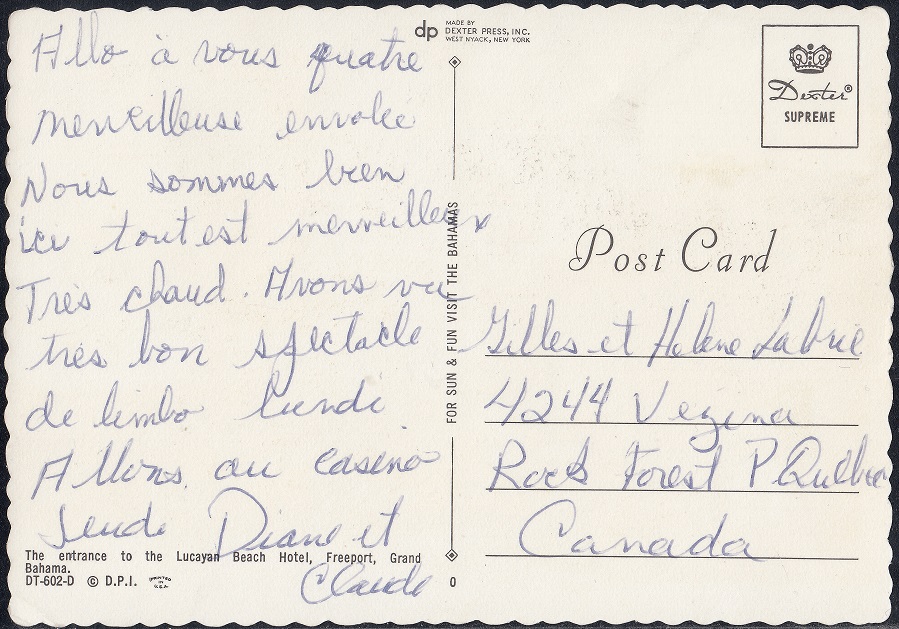 Allo à vous quatre
merveilleuse envolée
Nous sommes bien
ici tout est merveilleux
Très chaud. Avons vu
très bon spectacle
de limbo lundi
Allons au casino
Jeudi Diane et
Claude
The entrance to the Lucayan Beach Hotel, Freeport, Grand
Bahama.
DT-602-D © D.P.I. PRINTED IN U.S.A.
dp MADE BY
DEXTER PRESS, INC.
WEST NYACK, NEW YORK
FOR SUN & FUN VISIT THE BAHAMAS
0
Dexter®
SUPREME
Post Card
Gilles et Helene Labrie
4244 Vezina
Rock Forest P. Quebec
Canada